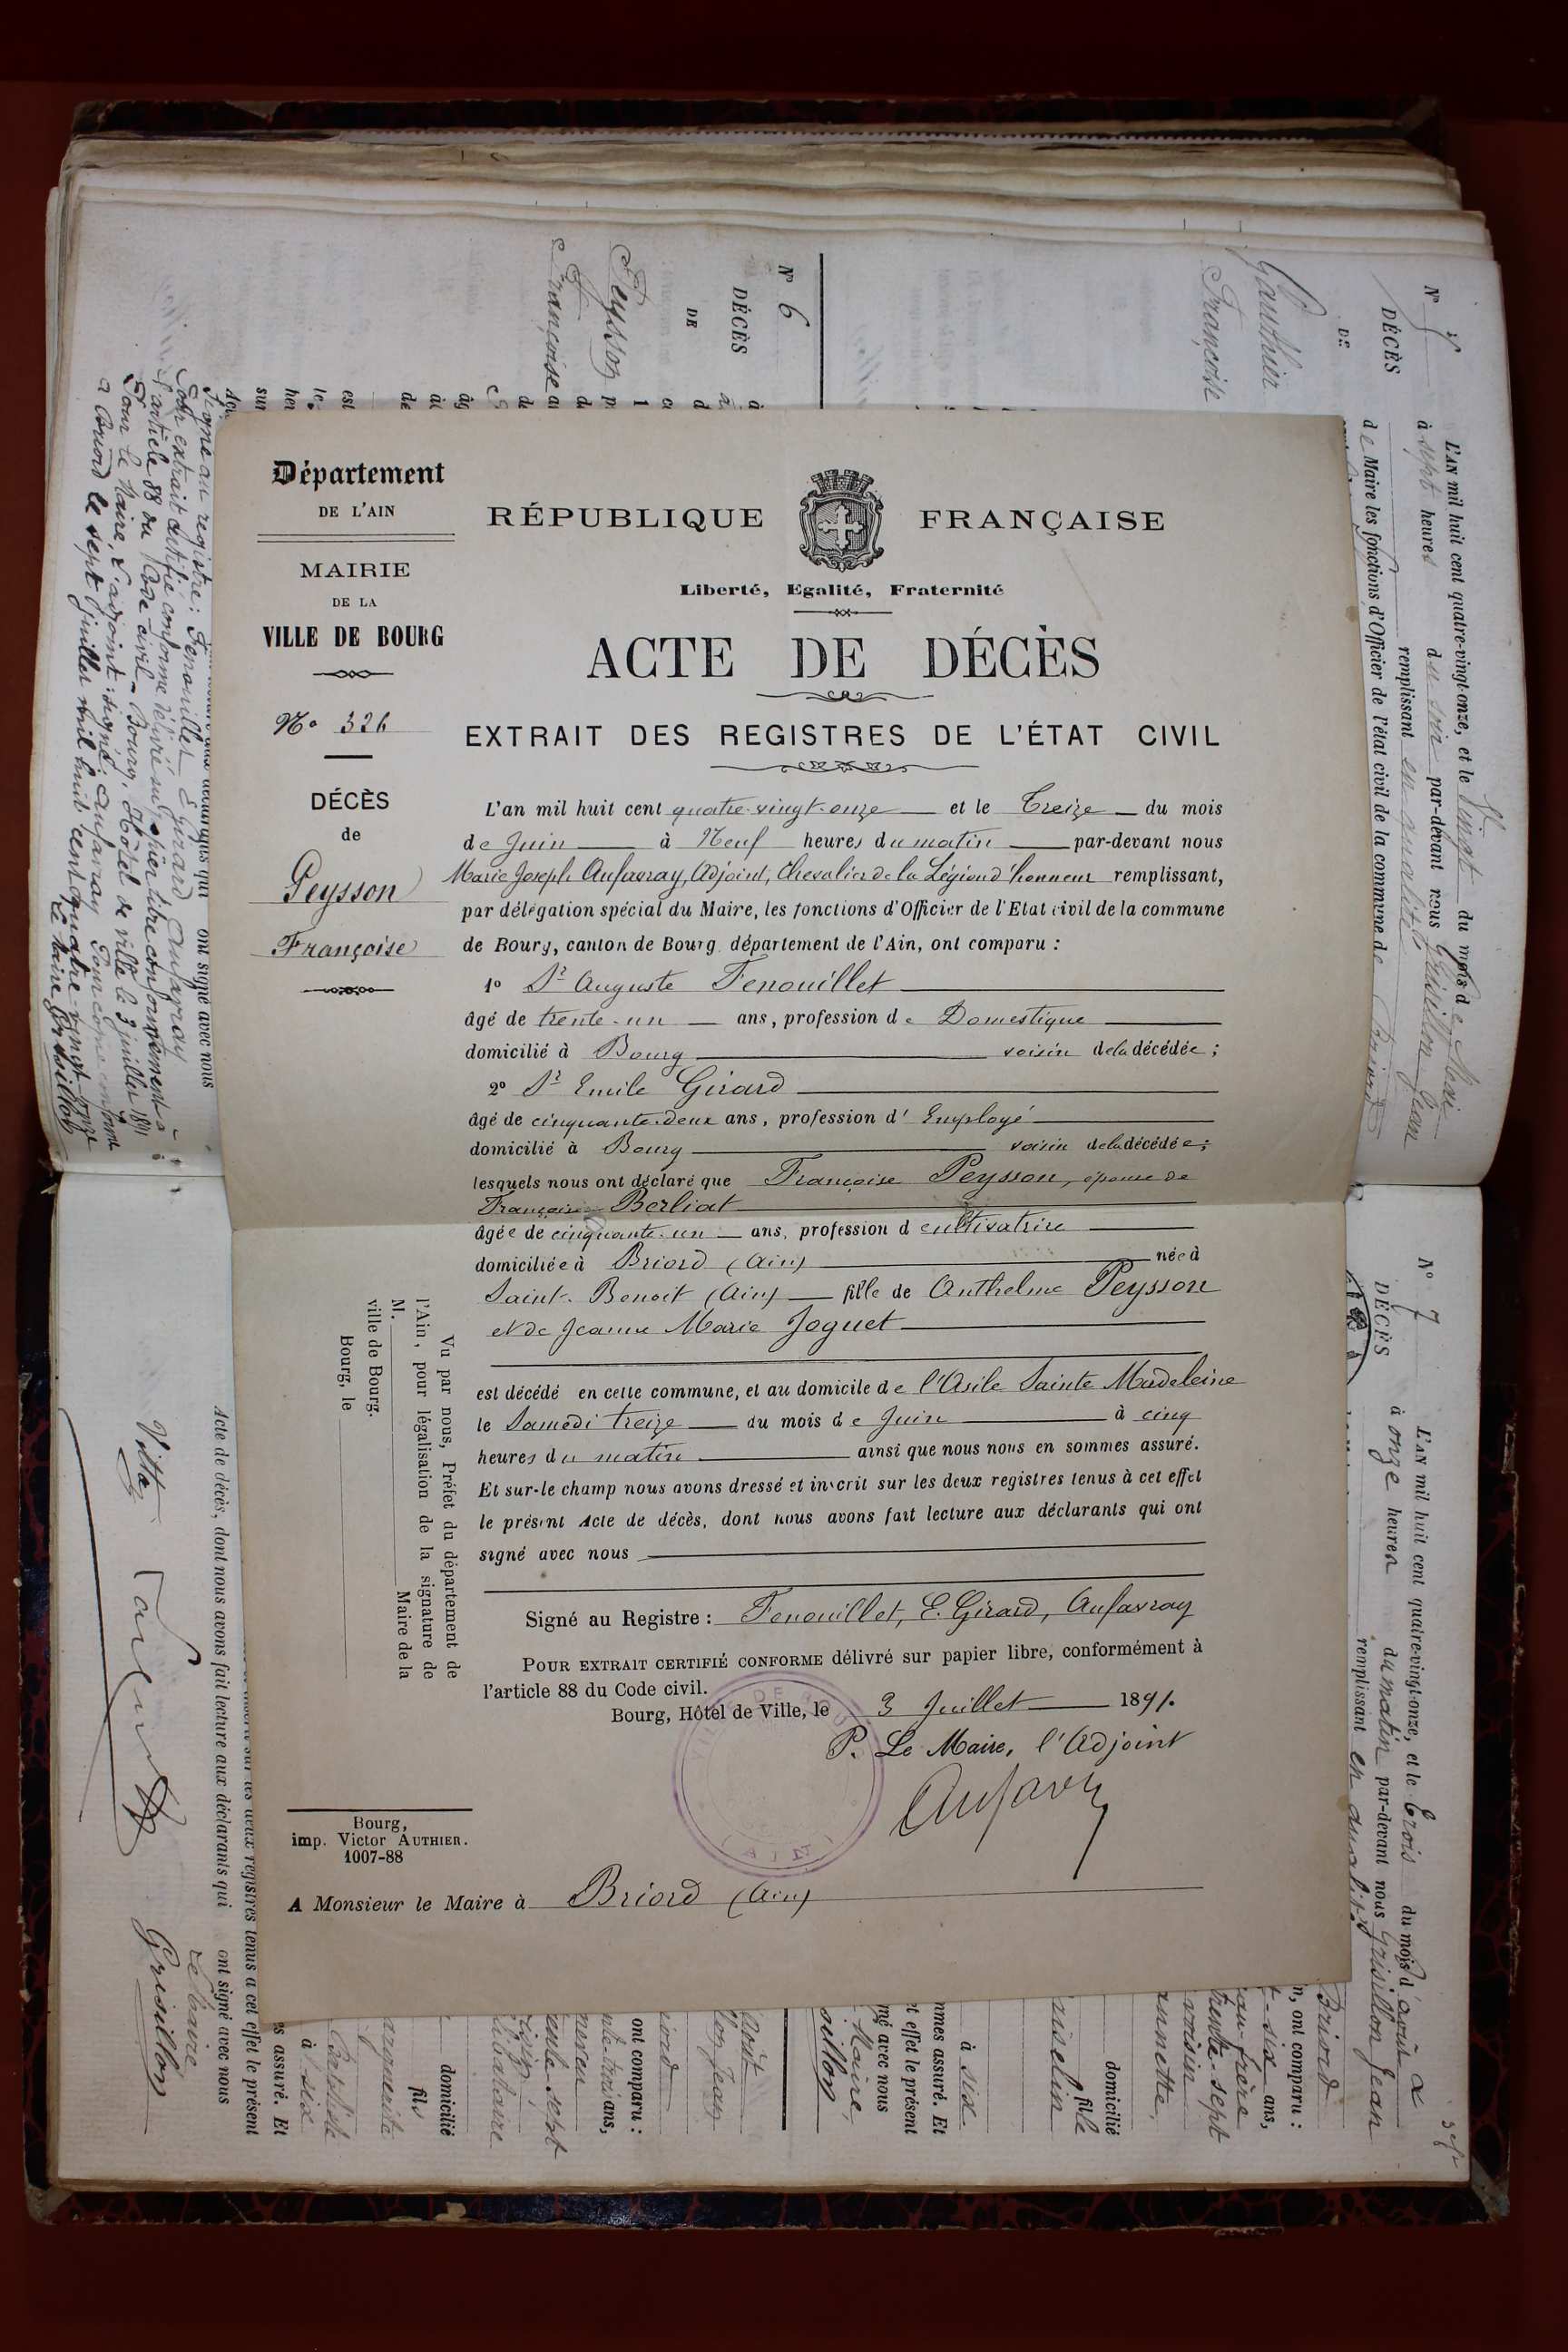 Département
DE L'AIN
MAIRIE
DE LA
VILLE DE BOURG
N° 326
DÉCÈS
de
Peysson
Françoise
RÉPUBLIQUE FRANÇAISE
Liberté, Egalité, Fraternité
ACTE DE DÉCÈS
EXTRAIT DES REGISTRES DE L'ÉTAT CIVIL
L'an mil huit cent quatre-vingt-onze et le Treize du mois
de Juin à Neuf heures du matin par-devant nous
Marie Joseph Aufavray, Adjoint, Chevalier de la Légion d'honneur remplissant,
par délégation spécial du Maire, les fonctions d'Officier de l'Etat civil de la commune
de Bourg, canton de Bourg département de l'Ain, ont comparu :
1° Sr Auguste Fenouillet
âgé de trente-un ans, profession de Domestique
domicilié à Bourg voisin de la décédée ;
2° Sr Emile Girard
âgé de cinquante-deux ans, profession d' Employé
domicilié à Bourg voisin de la décédée ;
lesquels nous ont déclaré que Françoise Peysson, épouse de
François Berliat
âgée de cinquante-un ans, profession d cultivatrice
domiciliée à Briord (Ain) née à
Saint-Benoit (Ain) fille de Anthelme Peysson
et de Jeanne Marie Joguet
est décédé en cette commune, et au domicile de l'Asile Sainte Madeleine
le Samedi treize du mois de Juin à cinq
heures du matin ainsi que nous nous en sommes assuré.
Et sur-le champ nous avons dressé et inscrit sur les deux registres tenus à cet effet
le présent Acte de décès, dont nous avons fait lecture aux déclarants qui ont
signé avec nous
Signé au Registre : Fenouillet, E. Girard, Aufavray
POUR EXTRAIT CERTIFIÉ CONFORME délivré sur papier libre, conformément à
l'article 88 du Code civil.
Bourg, Hôtel de Ville, le 3 Juillet 1891.
P. Le Maire, l'Adjoint
Aufavray
Vu par nous, Préfet du département de
l'Ain, pour légalisation de la signature de
M. Maire de la
ville de Bourg.
Bourg, le
Bourg,
imp. Victor AUTHIER.
1007-88
A Monsieur le Maire à Briord (Ain)
N° 5
DÉCÈS
DE
Gauthier
Françoise
L'AN mil huit cent quatre-vingt-onze, et le Vingt du mois de Mai
à sept heures du soir par-devant nous Grisillon Jean
remplissant en qualité
de Maire les fonctions d'Officier de l'état civil de la commune de Briord
N° 6
DÉCÈS
DE
Peysson
Françoise
ont signé avec nous
Signé au registre : Fenouillet E. Girard, Aufavray
Pour extrait certifié conforme délivré sur papier libre conformément à
l'article 88 du Code civil. Bourg, Hôtel de ville le 3 juillet 1891
Pour le Maire, l'adjoint : signé : Aufavray Pour copie conforme
à Briord le sept juillet mil huit cent quatre-vingt-onze
Le Maire Grisillon
N° 7
DÉCÈS
L'AN mil huit cent quatre-vingt-onze, et le trois du mois d'août
à onze heures du matin par-devant nous Grisillon Jean
remplissant en qualité
Briord
n, ont comparu :
t-six ans,
au-frère
trente-sept
voisin
domicilié
fille
à six
mmes assuré. Et
t effet le présent
né avec nous
Maire,
sillon
août
lon Jean
ont comparu :
nte-trois ans,
neveu
ente-sept
voisin
domicilié
fils
à six
es assuré. Et
les deux registres tenus à cet effet le présent
Acte de décès, dont nous avons fait lecture aux déclarants qui ont signé avec nous
Le Maire
Grisillon